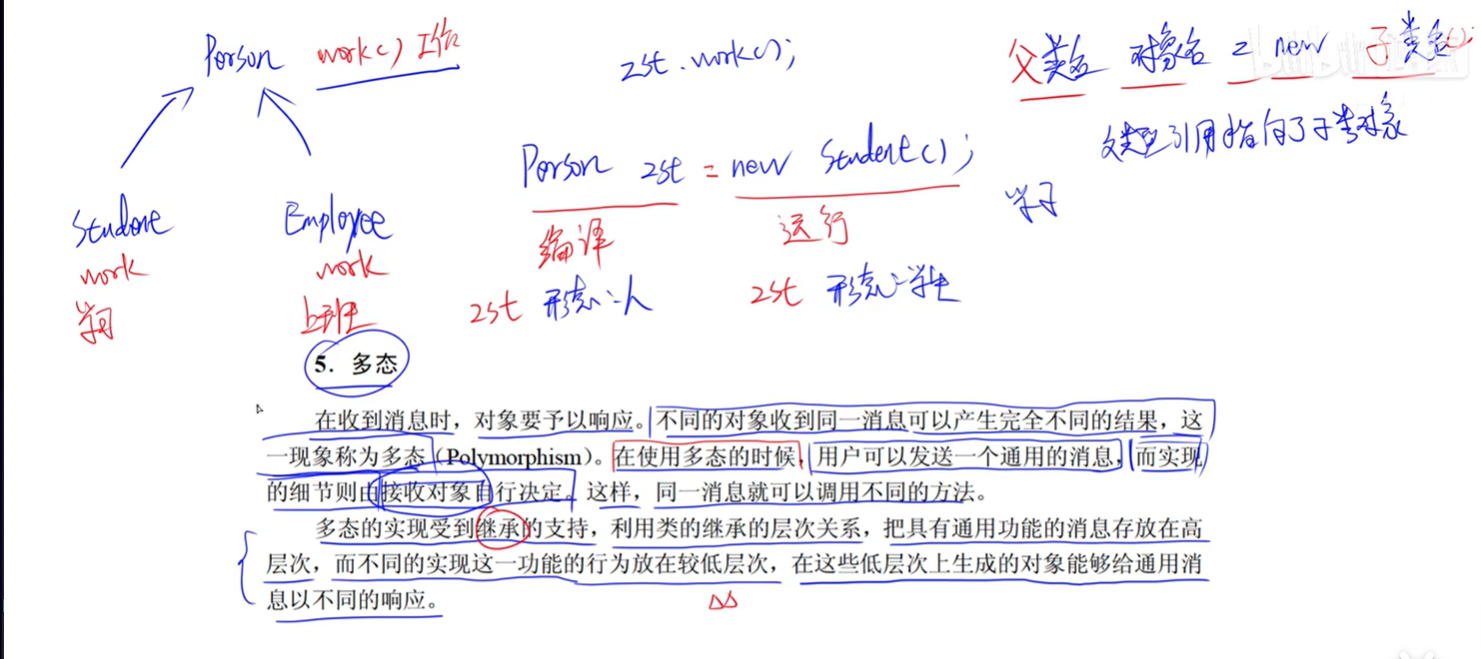 Person work() 工作
zst.work();
父类名 对象名 = new 子类名();
父类型引用指向了子类对象
Person zst = new Student();
Studene Employee
编译 运行
学习
work work
zst 形态:人 zst 形态:学生
学习 上班
5. 多态
在收到消息时，对象要予以响应。不同的对象收到同一消息可以产生完全不同的结果，这
一现象称为多态（Polymorphism）。在使用多态的时候，用户可以发送一个通用的消息，而实现
的细节则由接收对象自行决定。这样，同一消息就可以调用不同的方法。
多态的实现受到继承的支持，利用类的继承的层次关系，把具有通用功能的消息存放在高
层次，而不同的实现这一功能的行为放在较低层次，在这些低层次上生成的对象能够给通用消
息以不同的响应。